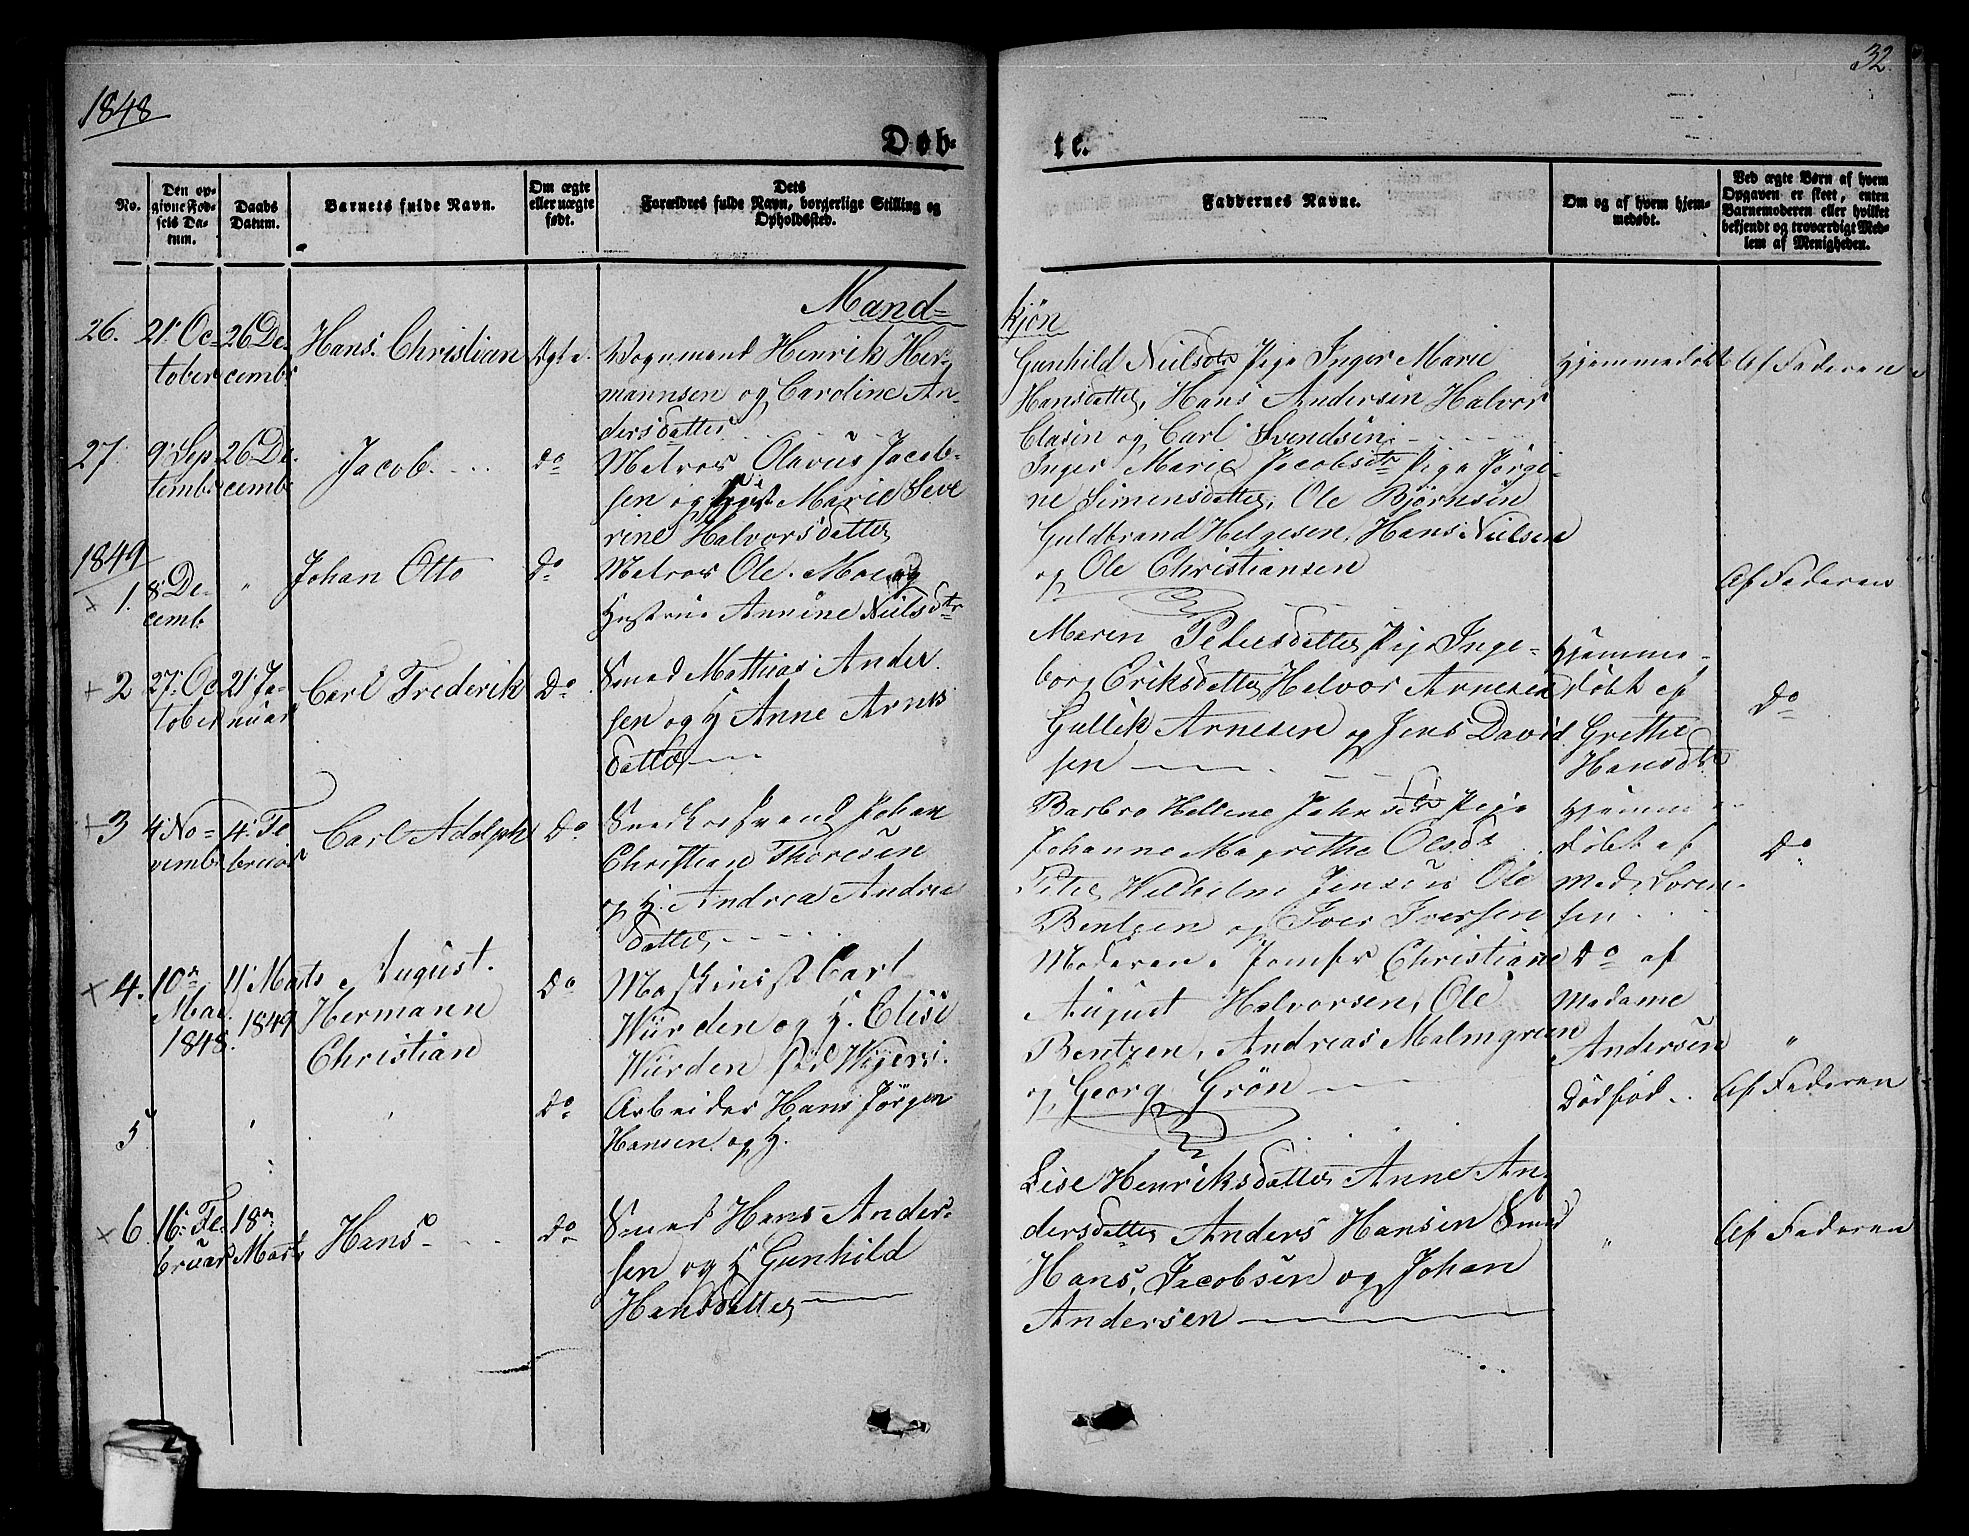 1848
32.
Døb-
te.
No.
Den op-
givne Fød-
sels Da-
tum.
Daabs
Datum.
Barnets fulde Navn.
Om ægte
eller uægte
født.
Dets
Forældres fulde Navn, borgerlige Stilling og
Opholdssted.
Faddernes Navne.
Om og af hvem hjem-
medøbt.
Ved ægte Børn af hvem
Opgaven er skeet, enten
Barnemoderen eller hvilket
bekjendt og troværdigt Med-
lem af Menigheden.
Mand-
kjøn
26.
21 Oc-
tober
26 De-
cembr
Hans Christian
Ægte.
Vognmand Henrik Her-
mannsen og Caroline An-
dersdatter
Gunhild Nielsdtr Pige Inger Marie
Hansdatter, Hans Andersen Halvor
Clasen og Carl Svendsen.
Hjemmedøbt
Af Faderen
27.
9 Sep-
tembr
26 De-
cembr
Jacob.
do
Matros Olavus Jacob-
sen og Marie Seve
rine Halvorsdatter
Inger Marie Jacobsdtr Pige Jørgi-
ne Simensdatter, Ole Bjørnsen
Guldbrand Helgesen, Hans Nielsen
og Ole Christiansen
1849
1.
8 De-
cemb.
"
Johan Otto
Do
Matros Ole Moe og
Hustrue Annine Nielsdtr
Af Faderen
2
27 Oc
tober
21 Ja-
nuar
Carl Frederik
Do
Smed Mathias Ander
sen og H Anne Arnes
datter
Maren Petersdatter Pige Inge-
borg Eriksdatter Halvor Arnesen
Gullik Arnesen og Jens David
sen
Hjemme-
døbt af
Grethe
Hansdtr
Do
3
4 No-
vembr
4 Fe
bruar
Carl Adolph
Do
Snedkersvend Johan
Christian Thoresen
og H. Andrea Andrea
datter
Barbro Hellene Johnsdtr Pige
Johanne Magrethe Olsdtr
Peter Wilhelm Jensen Ole
Bentzen og Iver Iversen
Hjemme-
døbt af
Mad. Loren-
sen
Do
4.
10de
Mai
1848.
11 Marts
1849
August
Hermann
Christian
Do
Maskinist Carl
Würden og H. Elise
Würden fød
Moderen, Jomfr Christiane
August Halvorsen, Ole
Bentzen, Andreas Malmgreen
og Georg Grön
Do af
Madame
Andersen
"
5
Do
Arbeider Hans Jörgen
Hansen og H.
Dödfød
Af Faderen
6
16 Fe-
bruar
18de
Marts
Hans
Do
Smed Hans Ander-
sen og H Gunhild
Hansdatter
Lise Henriksdatter Anne An-
dersdatter Anders Hansen Smed
Hans Jacobsen og Johan
Andersen
"
Af Faderen